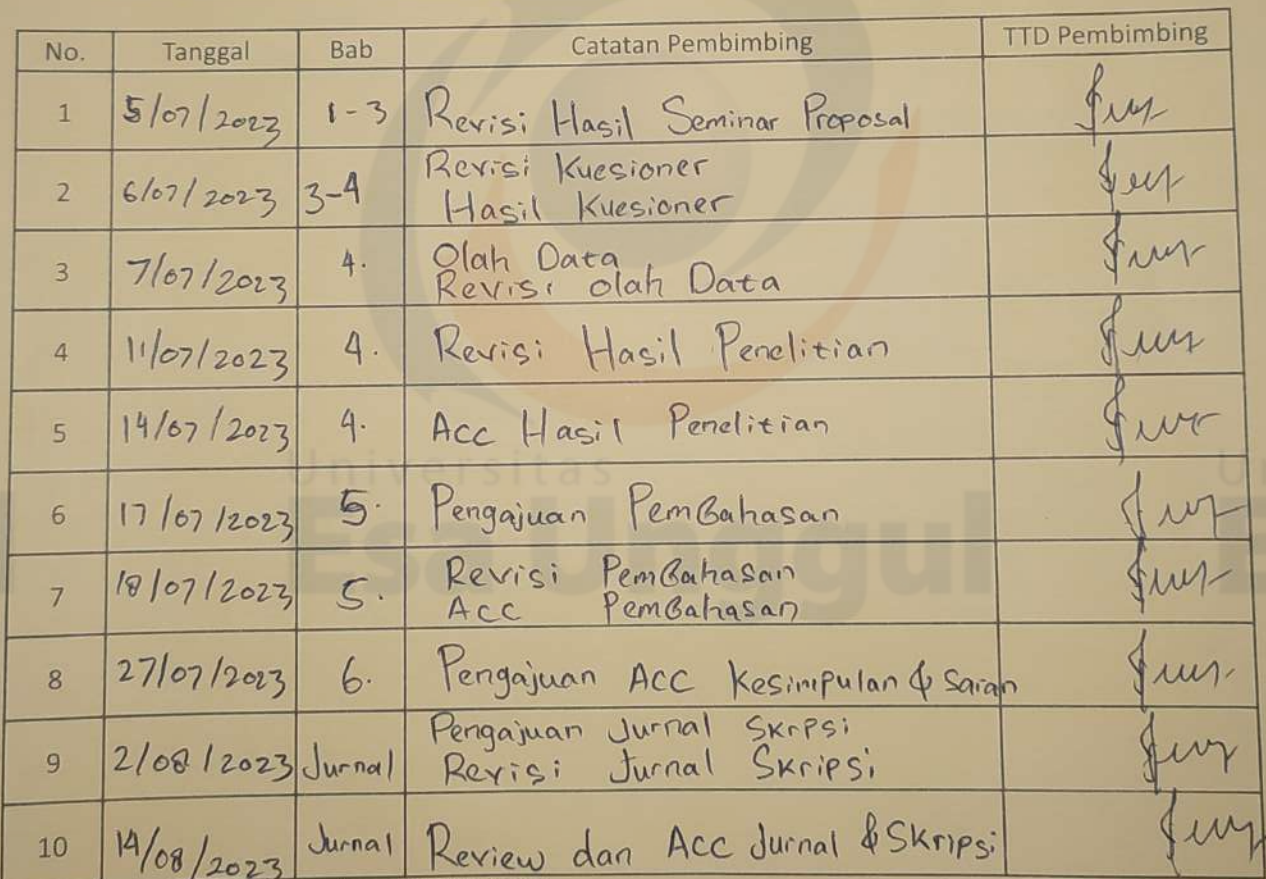 No. Tanggal Bab Catatan Pembimbing TTD Pembimbing
1 5/07/2023 1-3 Revisi Hasil Seminar Proposal
2 6/07/2023 3-4 Revisi Kuesioner
Hasil Kuesioner
3 7/07/2023 4. Olah Data
Revisi olah Data
4 11/07/2023 4. Revisi Hasil Penelitian
5 14/07/2023 4. Acc Hasil Penelitian
Universitas
Esa Unggul
6 17/07/2023 5. Pengajuan Pembahasan
7 18/07/2023 5. Revisi Pembahasan
ACC Pembahasan
8 27/07/2023 6. Pengajuan ACC Kesimpulan & Saran
9 2/08/2023 Jurnal Pengajuan Jurnal Skrpsi
Revisi Jurnal Skripsi
10 14/08/2023 Jurnal Review dan Acc Jurnal & Skripsi